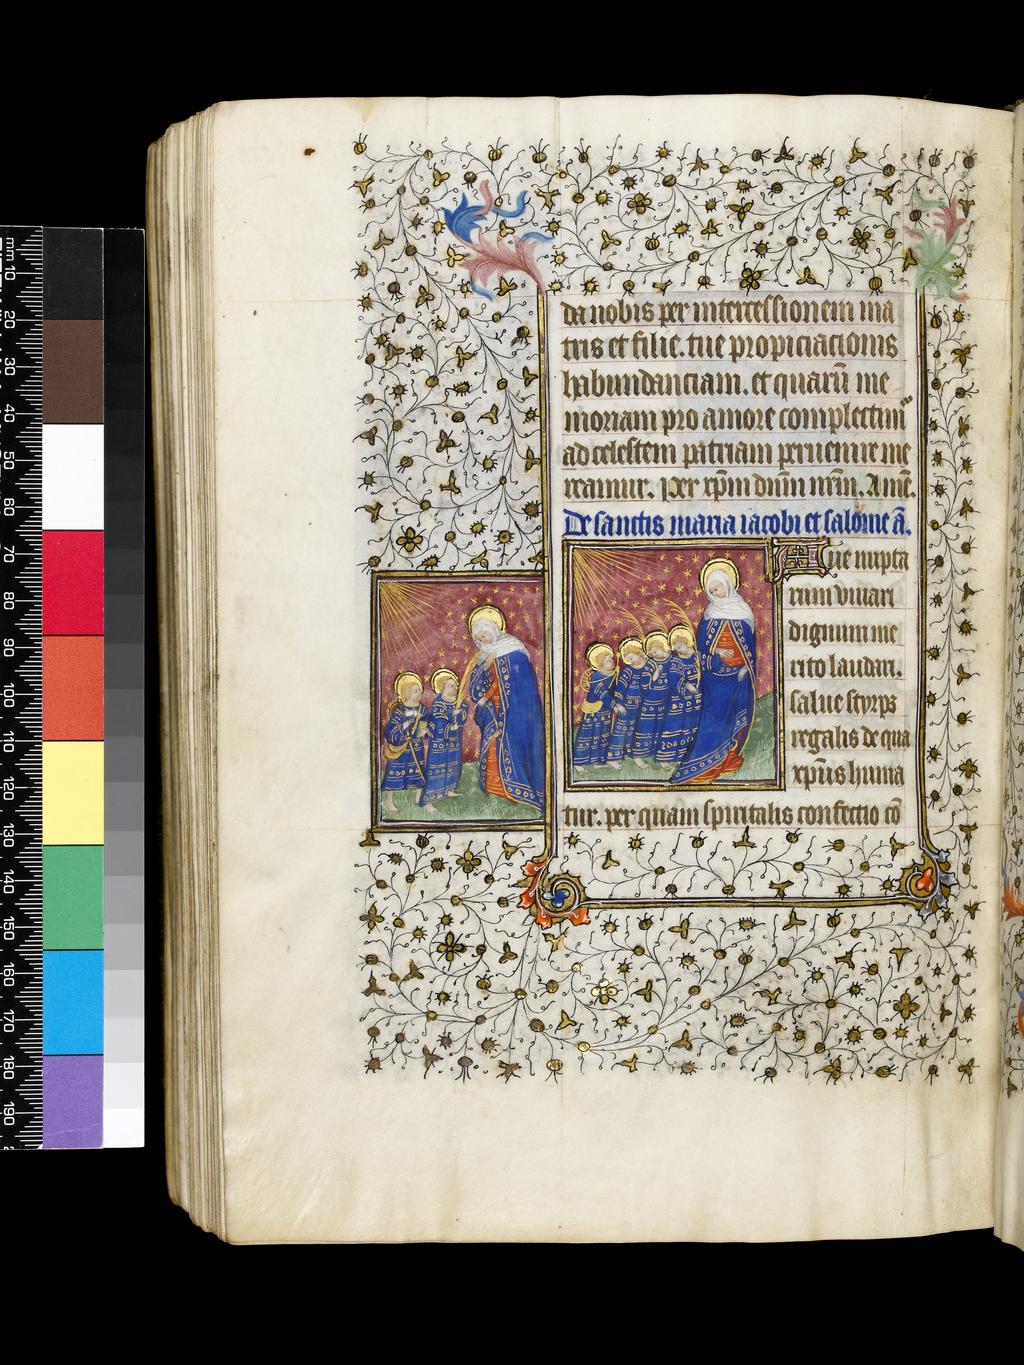 da nobis per intercessionem ma
tris et filie. tue propiciacionis
habundanciam. et quarū me
moriam pro amore complectim᷑
ad celestem patriam peruenire me
reamur. Per xp̄m dn̄m nr̄m. Amē.
De sanctis maria iacobi et salome ā.
Aue nupta
rum viuari
dignum me
rito laudari.
salue styrps
regalis de qua
xp̄us huma
tur. per quam spiritalis confectio cō
mm 10 20 30 40 50 60 70 80 90 100 110 120 130 140 150 160 170 180 190